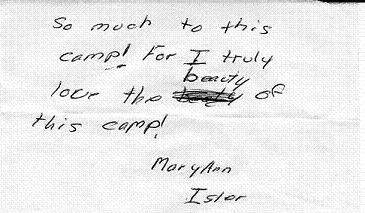 So much to this
camp! For I truly
beauty
love the beauty of
this camp!
MaryAnn
Islar